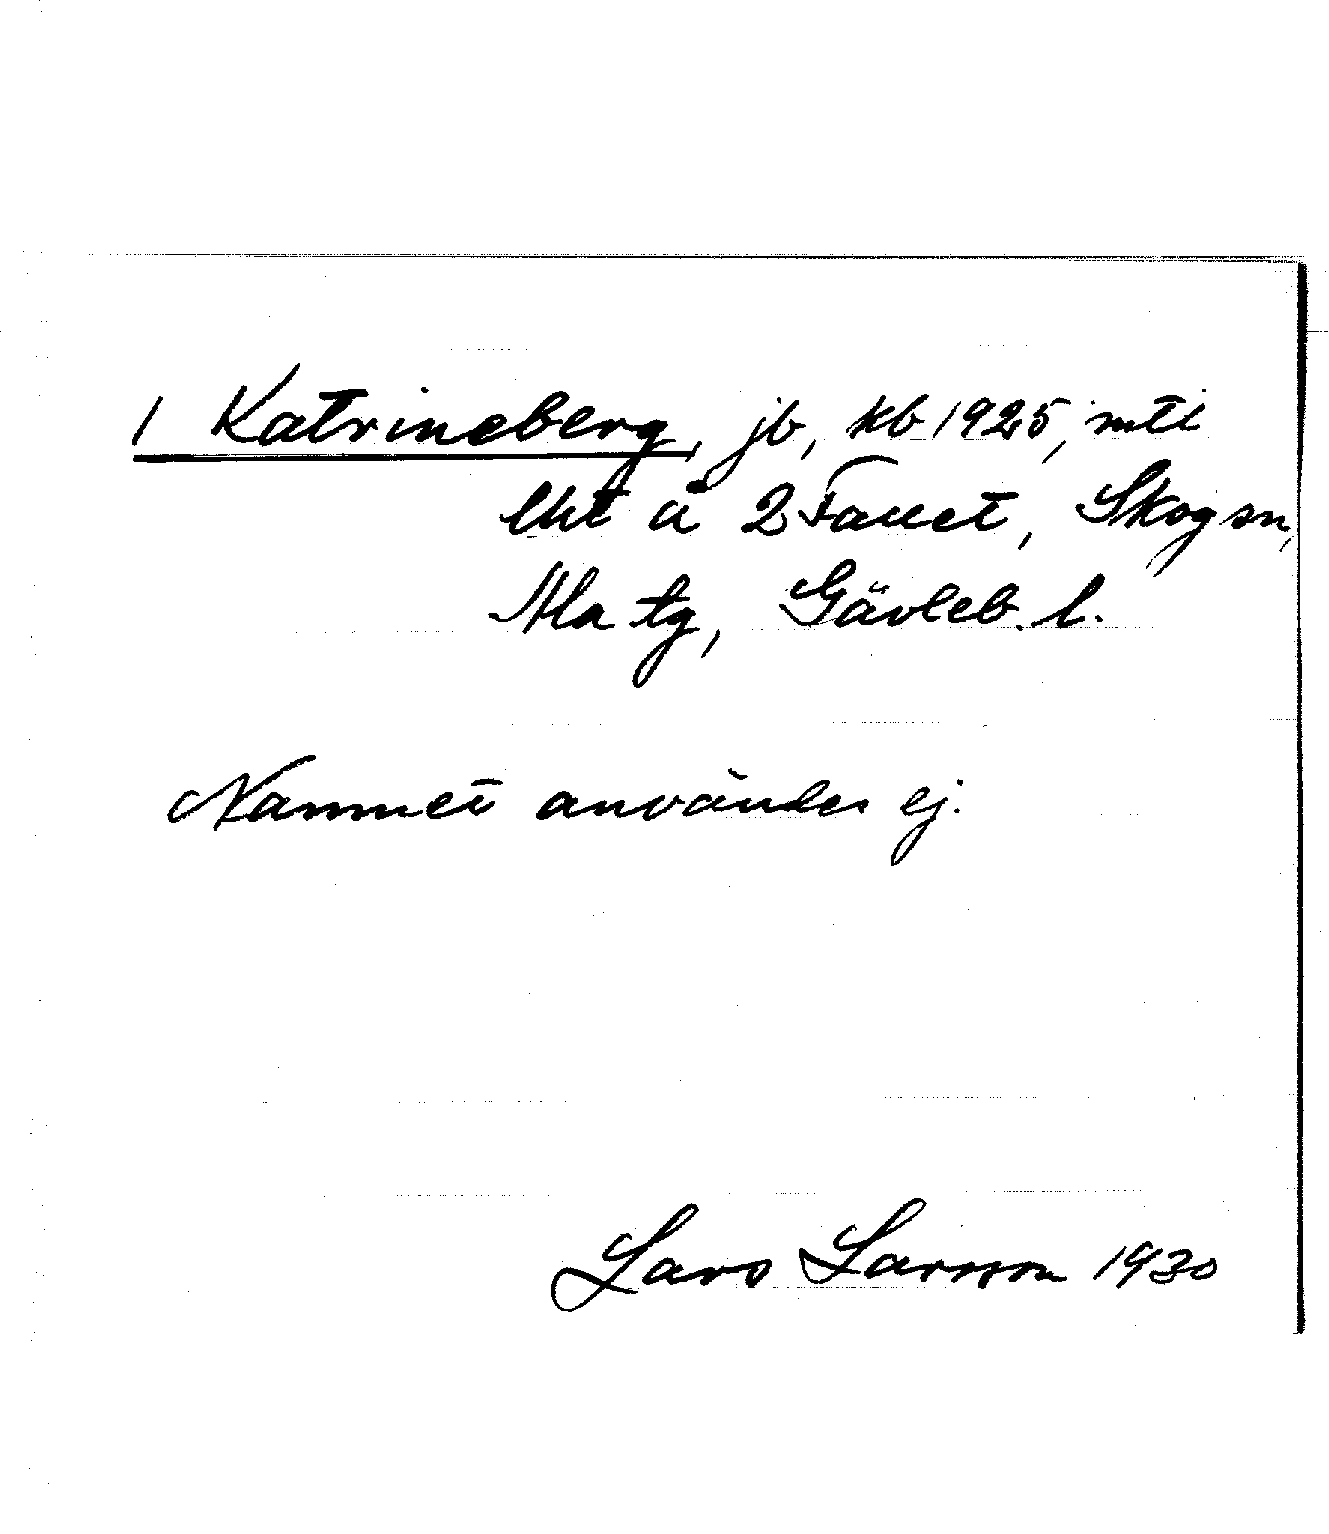 1 Katrineberg, jb, kb 1925, mtl
lht å 2 Fallet, Skog sn,
Ala tg, Gävleb. l.
Namnet användes ej.
Lars Larsson 1930